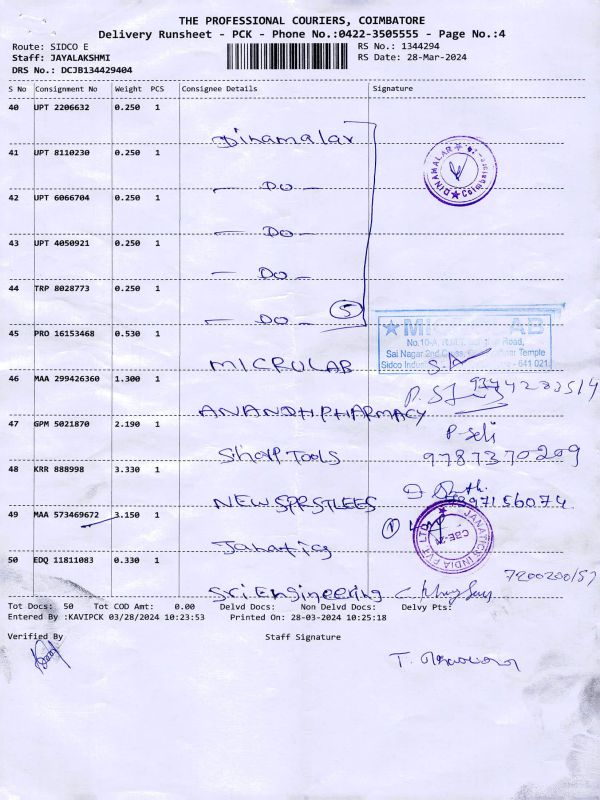 THE PROFESSIONAL COURIERS, COIMBATORE
Delivery Runsheet - PCK - Phone No.:0422-3505555 - Page No.:4
Route: SIDCO E
RS No.: 1344294
Staff: JAYALAKSHMI
RS Date: 28-Mar-2024
DRS No.: DCJB134429404
S No Consignment No Weight PCS Consignee Details Signature
40 UPT 2206632 0.250 1
Dinamalar
DINAMALAR Coimbatore
41 UPT 8110230 0.250 1
— Do —
42 UPT 6066704 0.250 1
— Do —
43 UPT 4050921 0.250 1
— Do —
44 TRP 8028773 0.250 1
— Do — 5
45 PRO 16153468 0.530 1
No.10-A, Road,
Sai Nagar 2nd Temple
Sidco - 641 021
MICROLAB
46 MAA 299426360 1.300 1
ANANDH PHARMACY
47 GPM 5021870 2.190 1
Sharp Tools 9787370209
48 KRR 888998 3.330 1
49 MAA 573469672 3.150 1
Janatics
JANATICS INDIA PVT LTD CBE-21
50 EDQ 11811083 0.330 1
Sri.Engineering
Tot Docs: 50 Tot COD Amt: 0.00 Delvd Docs: Non Delvd Docs: Delvy Pts:
Entered By :KAVIPCK 03/28/2024 10:23:53 Printed On: 28-03-2024 10:25:18
Verified By Staff Signature